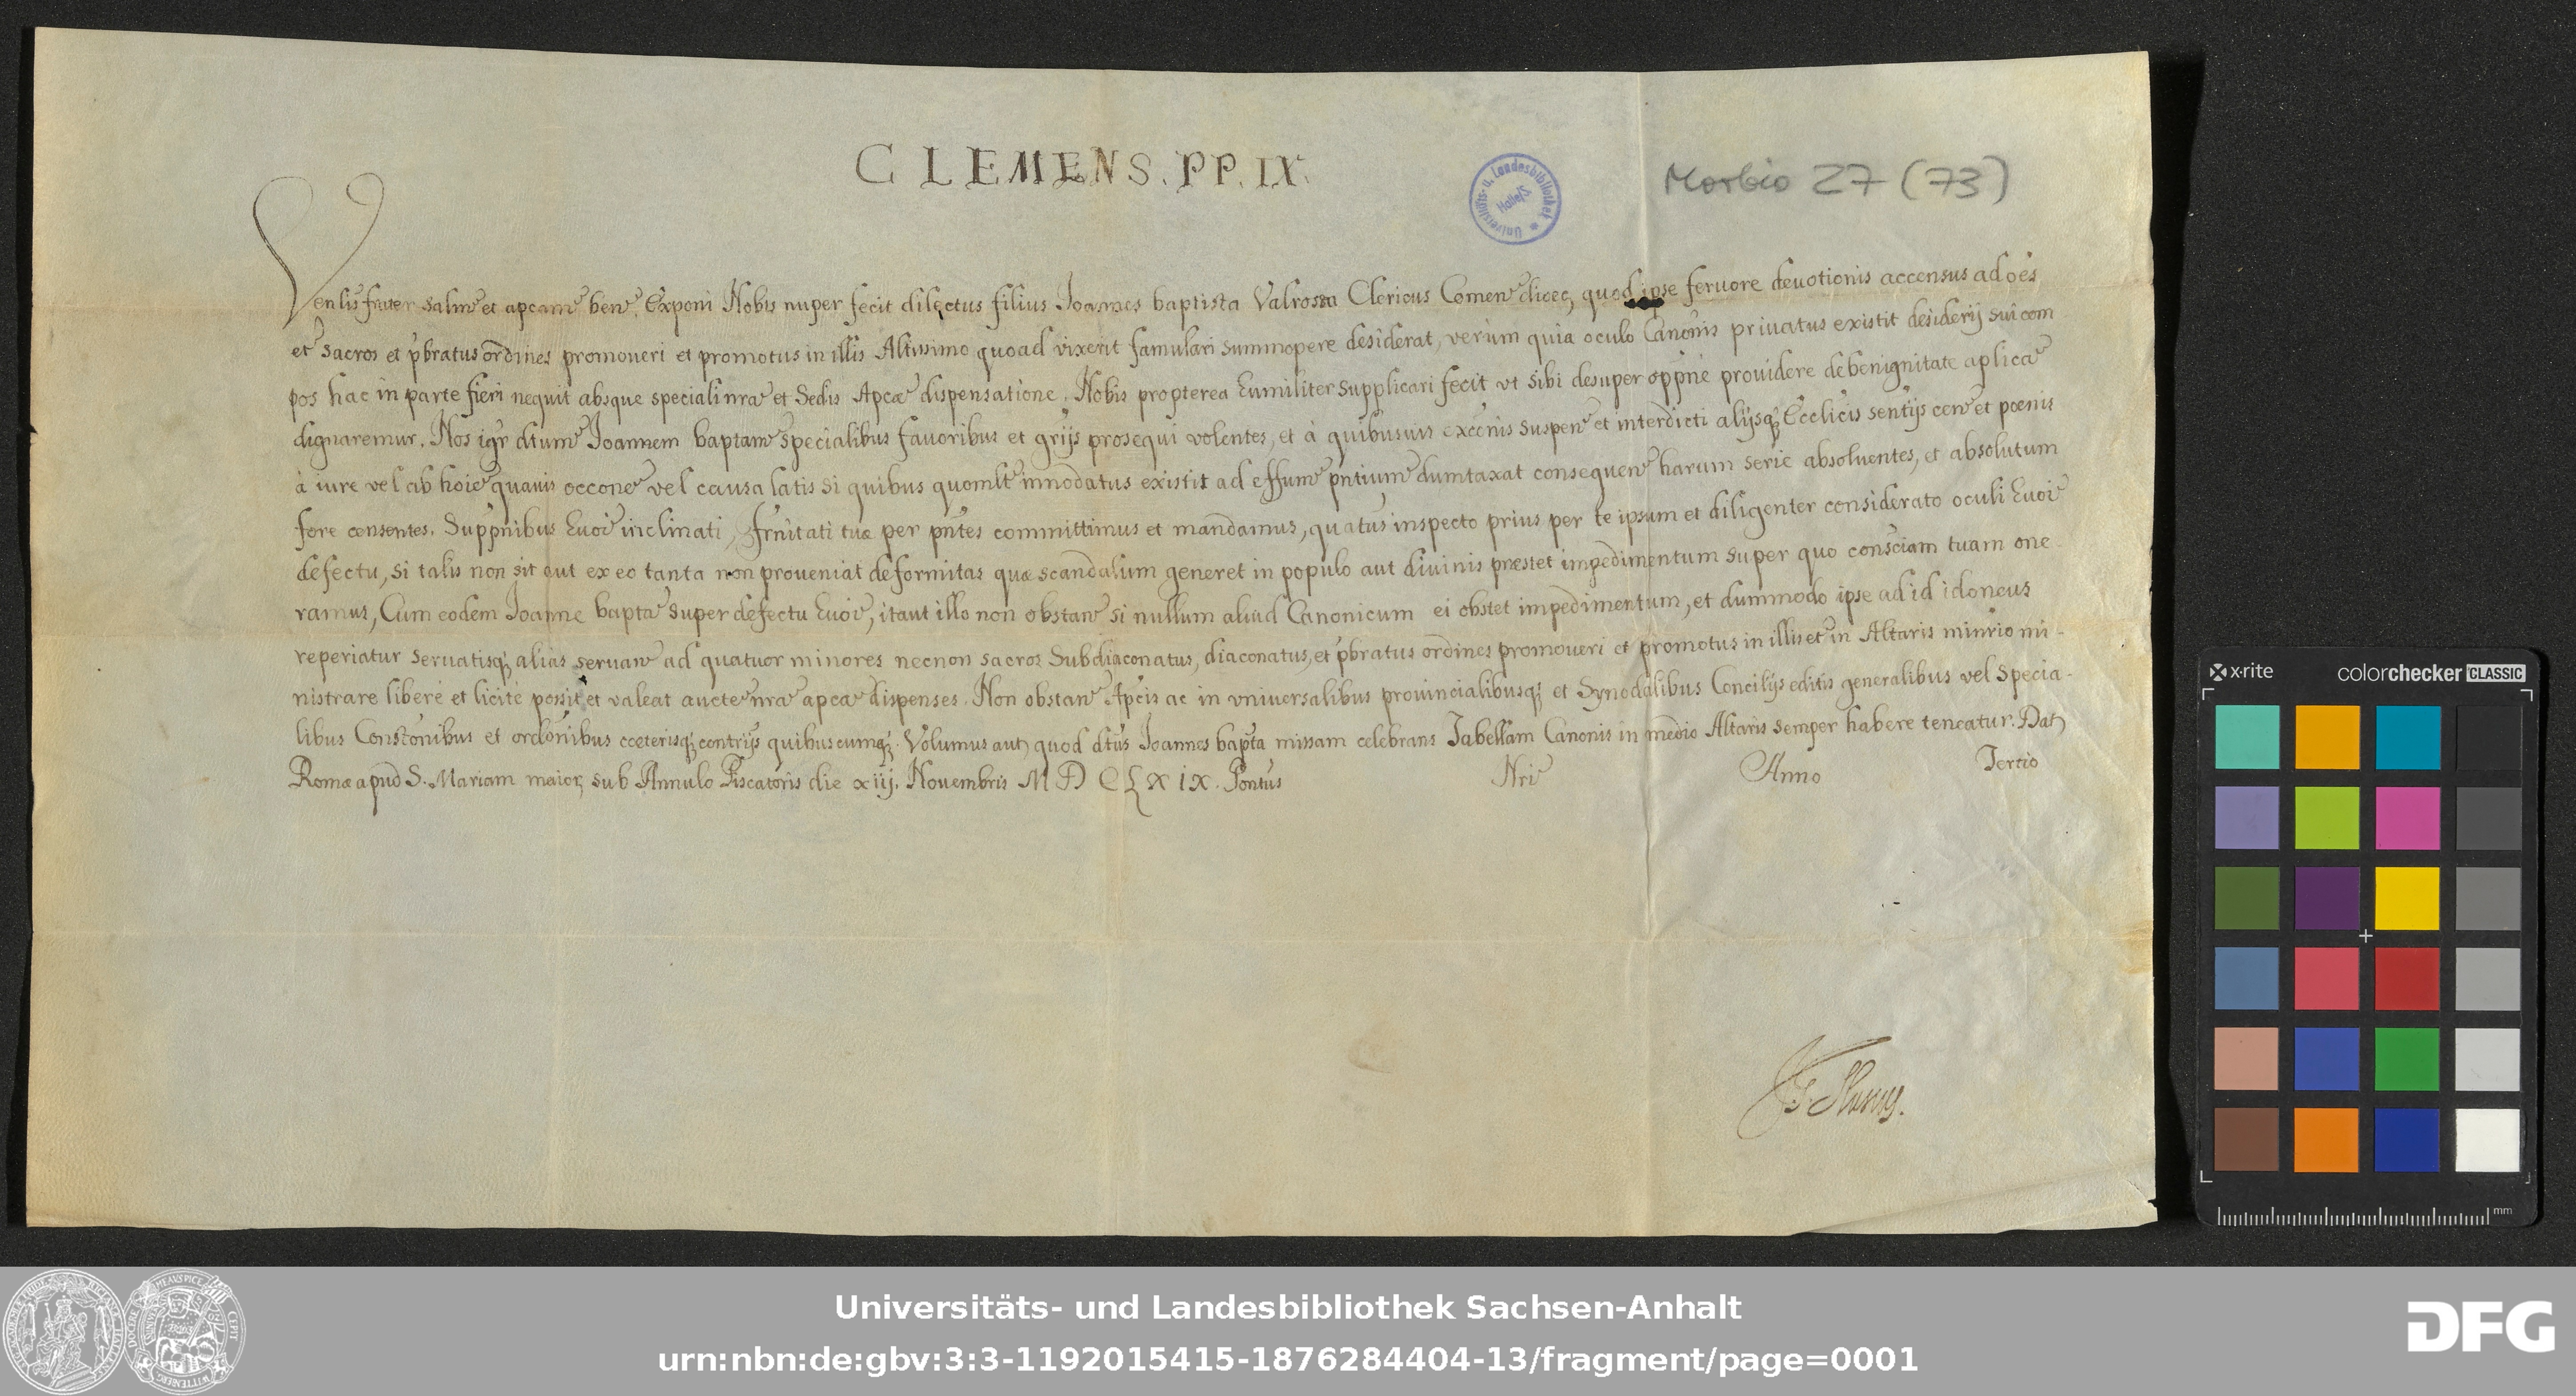 CLEMENS. PP. IX.
Universitäts- u. Landesbibliothek
Halle/S
Morbio 27 (73)
Venlis frater salm et apcam ben. Exponi Nobis nuper fecit dilectus filius Joannes baptista Valrossa Clericus Comen dioec, quod ipse feruore deuotionis accensus ad oes
et sacros et pbratus ordines promoueri et promotus in illis Altissimo quoad vixerit famulari summopere desiderat, verùm quia oculo Canonis priuatus existit desiderij sui com
pos hac in parte fieri nequit absque speciali nra et Sedis Apcæ dispensatione. Nobis propterea humiliter supplicari fecit vt sibi desuper oppne prouidere de benignitate aplica
dignaremur. Nos igr dtum Joannem baptam specialibus fauoribus et grijs prosequi volentes, et à quibusuis excenis suspen et interdicti alijsq Ecclicis sentijs cen et pœnis
à iure vel ab hoie quauis occone vel causa latis si quibus quomlt innodatus existit ad effum pntium dumtaxat consequen harum serie absoluentes, et absolutum
fore censentes. Suppnibus huoi inclinati, frnitati tuæ per pntes committimus et mandamus, quatus inspecto prius per te ipsum et diligenter considerato oculi huoi
defectu, si talis non sit aut ex eo tanta non proueniat deformitas quæ scandalum generet in populo aut diuinis præstet impedimentum super quo consciam tuam one
ramus, Cum eodem Joanne bapta super defectu huoi, itaut illo non obstan si nullum aliud Canonicum ei obstet impedimentum, et dummodo ipse ad id idoneus
reperiatur seruatisq alias seruan ad quatuor minores necnon sacros Subdiaconatus, diaconatus, et pbratus ordines promoueri et promotus in illis et in Altaris minrio mi-
nistrare liberè et licitè possit et valeat aucte nra apca dispenses. Non obstan Apcis ac in vniuersalibus prouincialibusq et Synodalibus Concilijs editis generalibus vel specia-
libus Constonibus et ordonibus cœterisq contrijs quibuscumq. Volumus aut quod dtus Joannes bapta missam celebrans Tabellam Canonis in medio Altaris semper habere teneatur. Dat
Romæ apud S. Mariam maior, sub Annulo Piscatoris die xiij. Nouembris MDCLXIX. Pontus Nri Anno Tertio
x-rite colorchecker CLASSIC
mm
Universitäts- und Landesbibliothek Sachsen-Anhalt
urn:nbn:de:gbv:3:3-1192015415-1876284404-13/fragment/page=0001
DFG